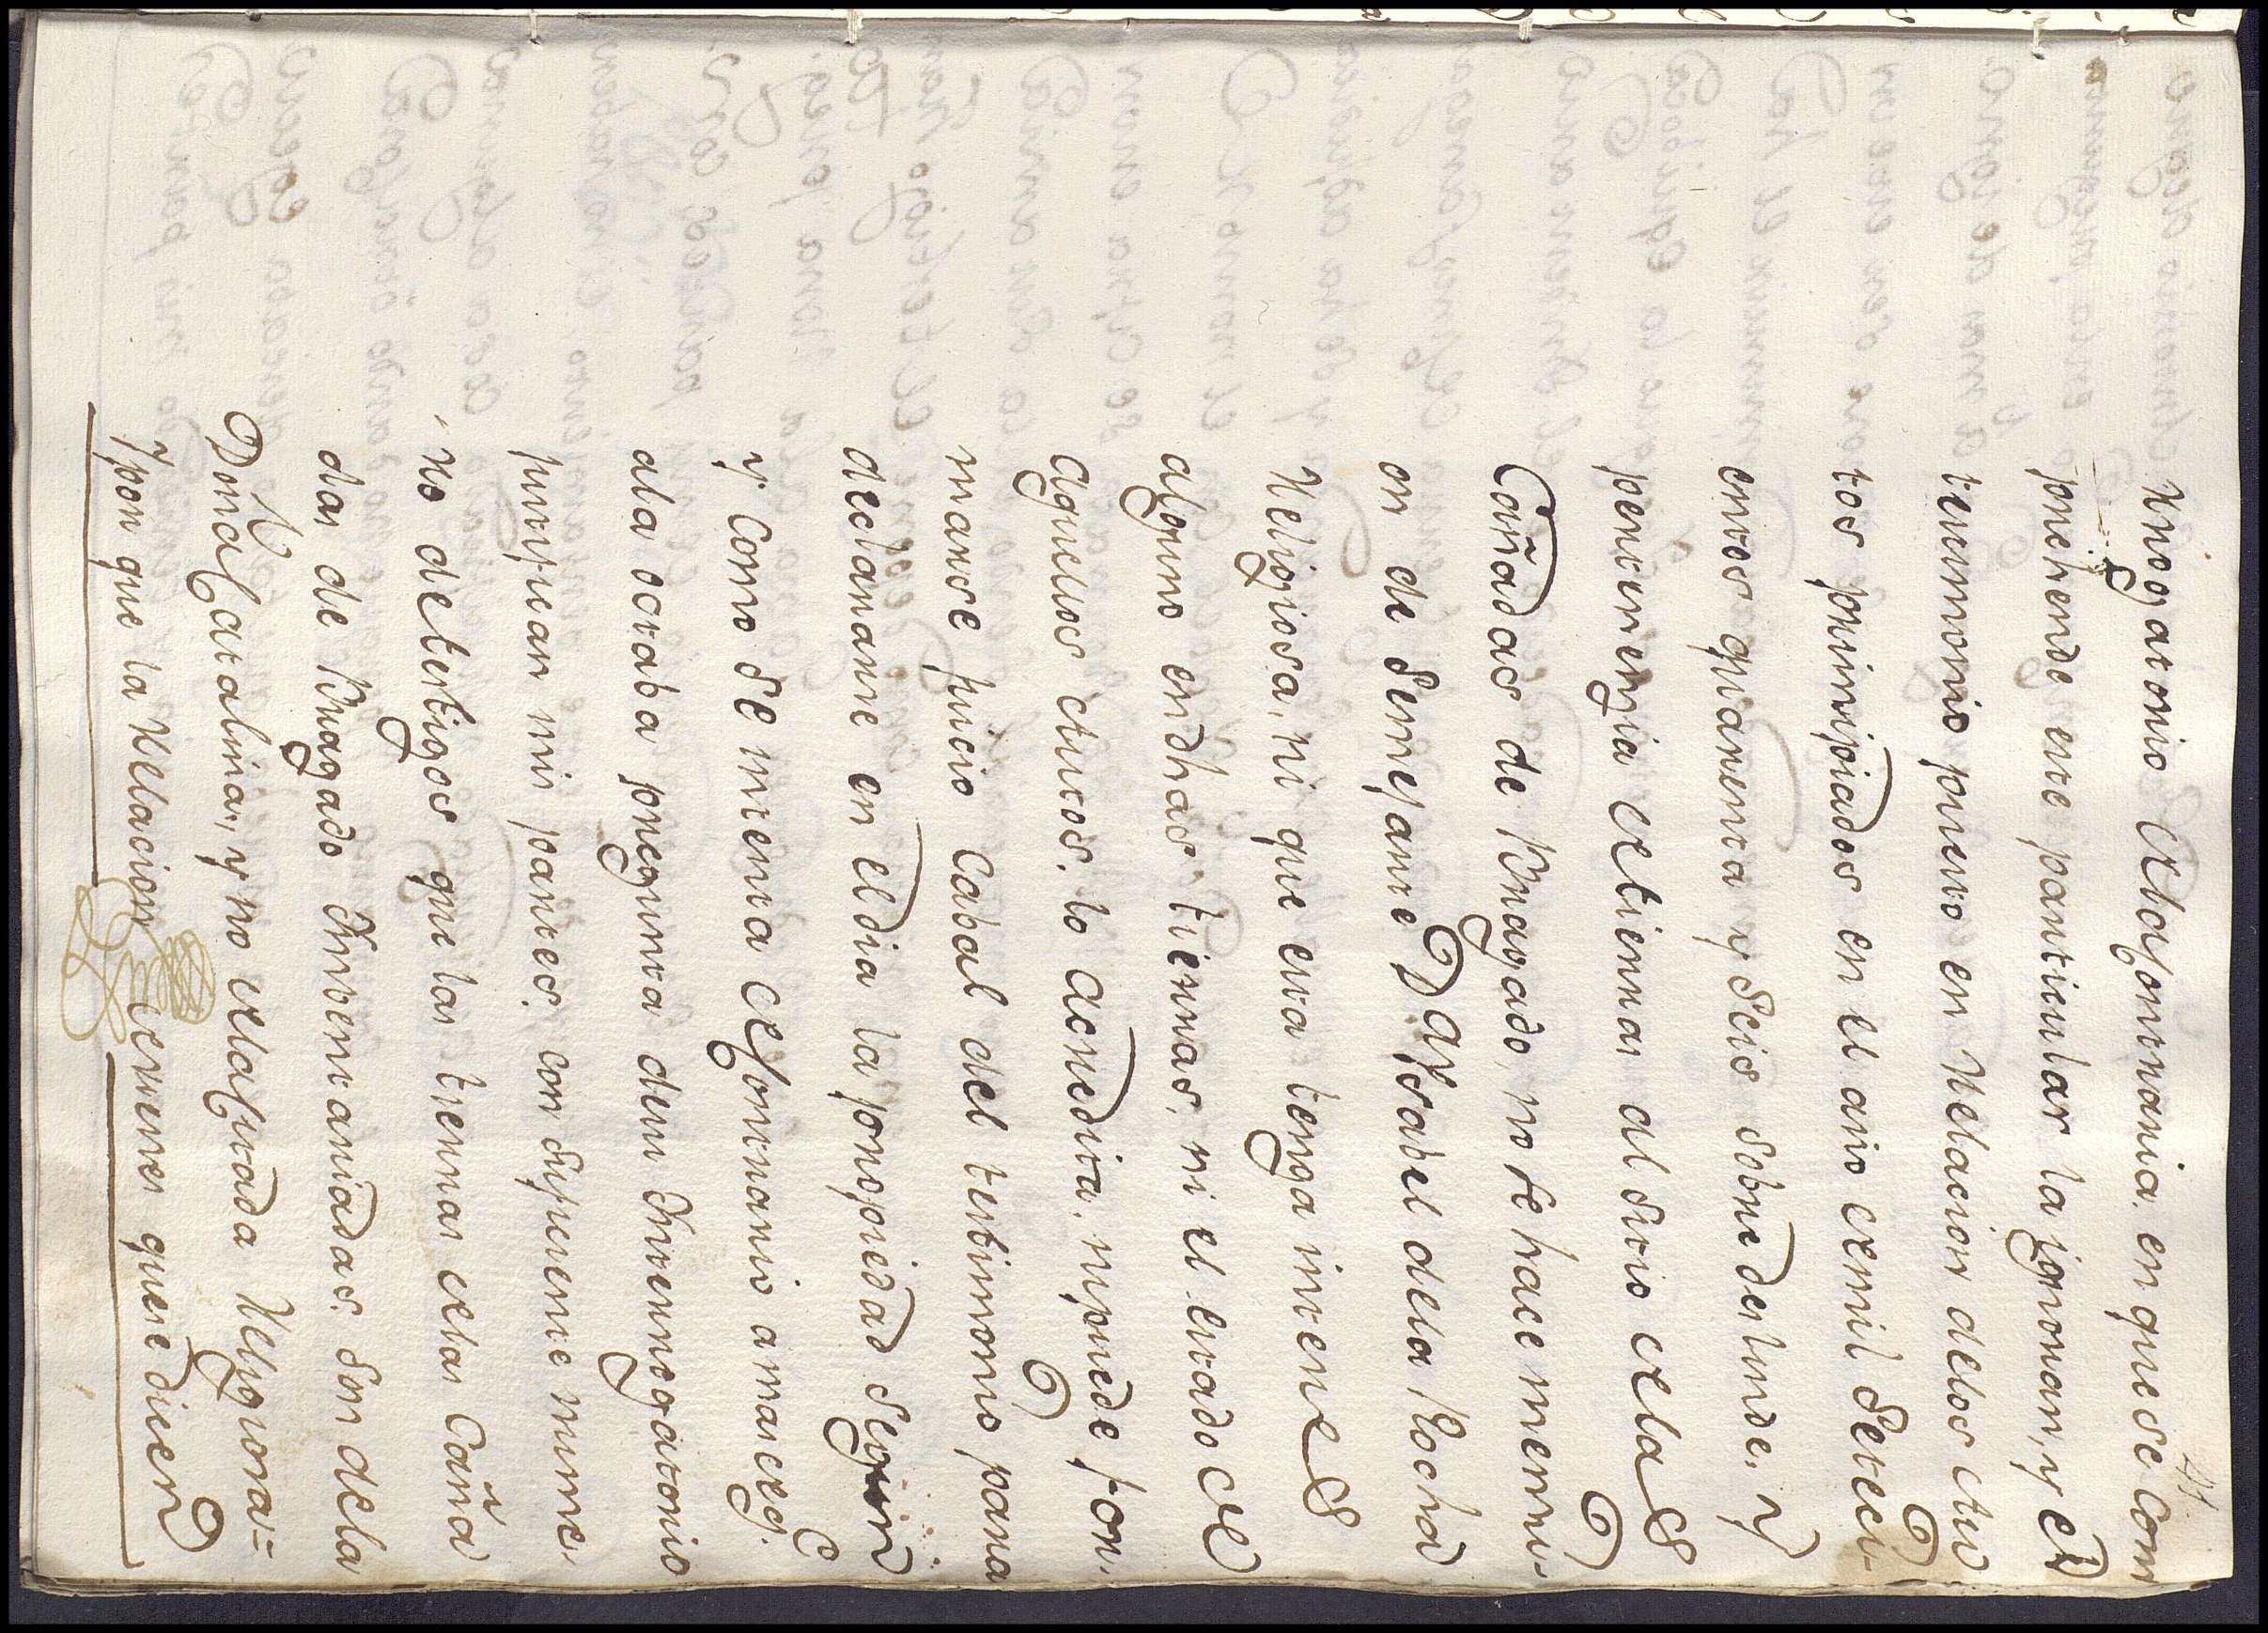 41
rrogatorio de la Joyosa Compañia en que se com
prehende este particular la ignoran, y el
testimonio puesto en Relacion delos Auto
tos principiados en el año de mil Seteci-
entos quarenta y Seis sobre deslinde, y
pertenenzia de tierras al sitio de las
Cañadas de Bragado, no se hace menzi-
on de semejante Dª Isabel dela Rocha
Religiosa, ni que esta tenga interes
alguno en dhas tierras, ni el estado de
aquellos Autos, lo acredita, ni puede for-
marse juicio Cabal del testimonio para
declararse en el dia la propiedad segun
y como se intenta de contrario amas de q.
ala octaba pregunta de su Interrogatorio
justifican mis partes, con suficiente nume-
ro de testigos que las tierras de las Caña
das de Bragado Inventariadas, son dela
Doña Catalina, y no de la fixada Religiosa=
y por que la Relacion